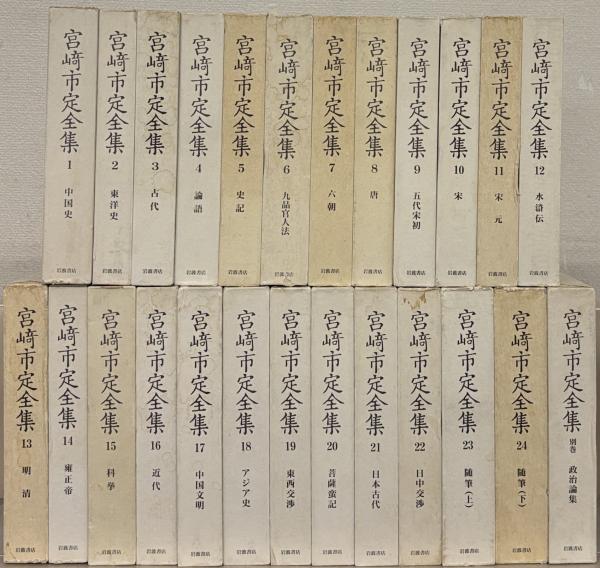 宮﨑市定全集 1 中国史 岩波書店
宮﨑市定全集 2 東洋史 岩波書店
宮﨑市定全集 3 古代 岩波書店
宮﨑市定全集 4 論語 岩波書店
宮﨑市定全集 5 史記 岩波書店
宮﨑市定全集 6 九品官人法 岩波書店
宮﨑市定全集 7 六朝 岩波書店
宮﨑市定全集 8 唐 岩波書店
宮﨑市定全集 9 五代宋初 岩波書店
宮﨑市定全集 10 宋 岩波書店
宮﨑市定全集 11 宋元 岩波書店
宮﨑市定全集 12 水滸伝 岩波書店
宮﨑市定全集 13 明清 岩波書店
宮﨑市定全集 14 雍正帝 岩波書店
宮﨑市定全集 15 科挙 岩波書店
宮﨑市定全集 16 近代 岩波書店
宮﨑市定全集 17 中国文明 岩波書店
宮﨑市定全集 18 アジア史 岩波書店
宮﨑市定全集 19 東西交渉 岩波書店
宮﨑市定全集 20 菩薩蛮記 岩波書店
宮﨑市定全集 21 日本古代 岩波書店
宮﨑市定全集 22 日中交渉 岩波書店
宮﨑市定全集 23 随筆(上) 岩波書店
宮﨑市定全集 24 随筆(下) 岩波書店
宮﨑市定全集 別巻 政治論集 岩波書店